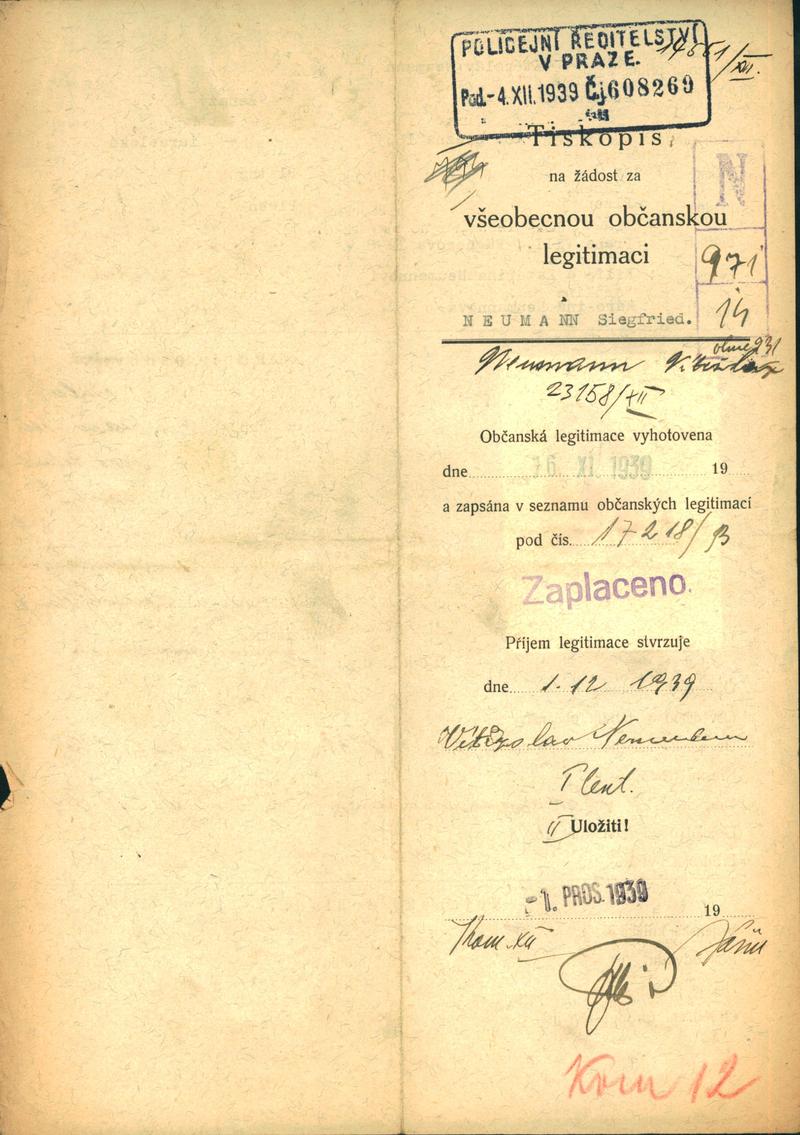 POLICEJNÍ ŘEDITELSTVÍ
V PRAZE.
Pod.-4.XII.1939 Čj608269
14551/XII.
Tiskopis
na žádost za
všeobecnou občanskou
legitimaci
N
971
14
NEUMANN Siegfried.
Neumann
23158/XII
Občanská legitimace vyhotovena
dne 16 XI 1939 19
a zapsána v seznamu občanských legitimací
pod čís. 17218/
Zaplaceno.
Příjem legitimace stvrzuje
dne 1.12 1939
Vítězslav Neumann
I
II Uložiti!
-1. PROS. 1939
19
Kom. XII
Kom 12